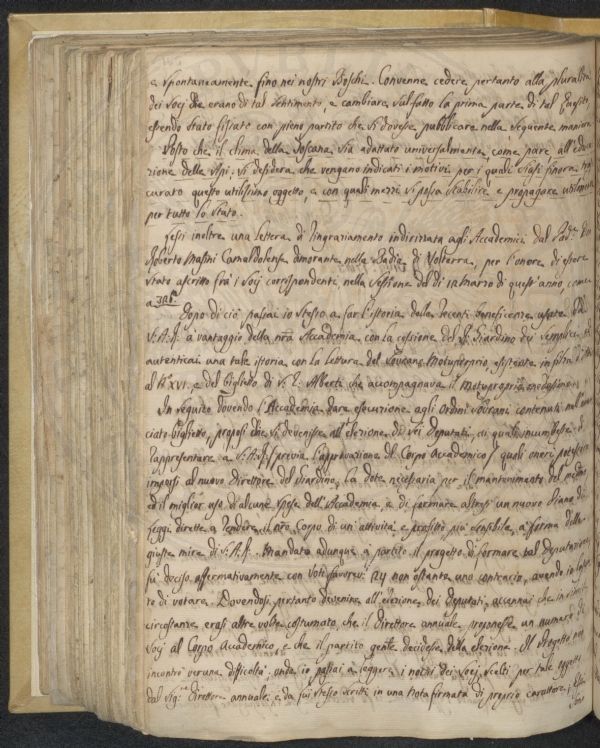 e spontaneamente fino nei nostri Boschi. Convenne cedere pertanto alla pluralità
dei Socj che erano di tal sentimento, e cambiare sul fatto la prima parte di tal
essendo stato fissato con pieno partito che si dovesse pubblicare nella seguente maniera
Posto che il clima della Toscana sia adattato universalmente, come pare all'educa
zione delle Api, si desidera che vengano indicati i motivi per i quali siasi finora tra
curato questo utilissimo oggetto, e con quali mezzi si possa stabilire e propagare utilmente
per tutto lo Stato.
Lessi inoltre una Lettera di ringraziamento indirizzata agli Accademici dal Pad.e Don
Roberto Masini Camaldolense dimorante nella Badia di Volterra, per l'onore di essere
stato ascritto frà i Socj corrispondente nella Sessione del dì 12 Marzo di quest'anno come
a
Dopo di ciò passai io stesso a far l'istoria della recente beneficenza usata da
S: A: R: a vantaggio della nr̃a Accademia con la cessione del R: Giardino dei Semplici ed
autenticai una tale istoria con la lettura del Sovrano Motuproprio, esistente in filza
al N.o XVI. e del Biglietto di S: E: Alberti che accompagnava il motuproprio medesimo.
In seguito dovendo l'Accademia dare esecuzione agli Ordini Sovrani contenuti nell'enun
ciato Biglietto, proposi che si devenisse all'elezione di sei Deputati, ai quali incumbesse di
rappresentare a S: A: R: (previa l'approvazione del Corpo Accademico) quali oneri potessero
imporsi al nuovo Direttore del Giardino, la dote necessaria per il mantenimento del medmo
ed il miglior uso d'alcune spese dell'Accademia, e di formare altresì un nuovo Piano di
Leggi dirette a rendere il nr̃o Corpo di un'attività e profitto più sensibile, a forma delle
giuste mire di S: A: R: Mandato adunque a partito il progetto di formare tal Deputazione,
fu deciso affermativamente con Voti favorev: 24 non ostante uno contrario,
te di votare. Dovendosi pertanto devenire all'elezione dei Deputati, accennai che in simili
circostanze erasi altre volte costumato, che il Direttore annuale proponesse un numero di
Socj al Corpo Accademico, e che il partito gente decidesse della elezione. Il Progetto non
incontrò veruna difficoltà, onde io passai a leggere i nomi dei Socj scelti per tale oggetto
dal Sig.re Direttore annuale e da lui stesso scritti in una Nota firmata di proprio carattere,